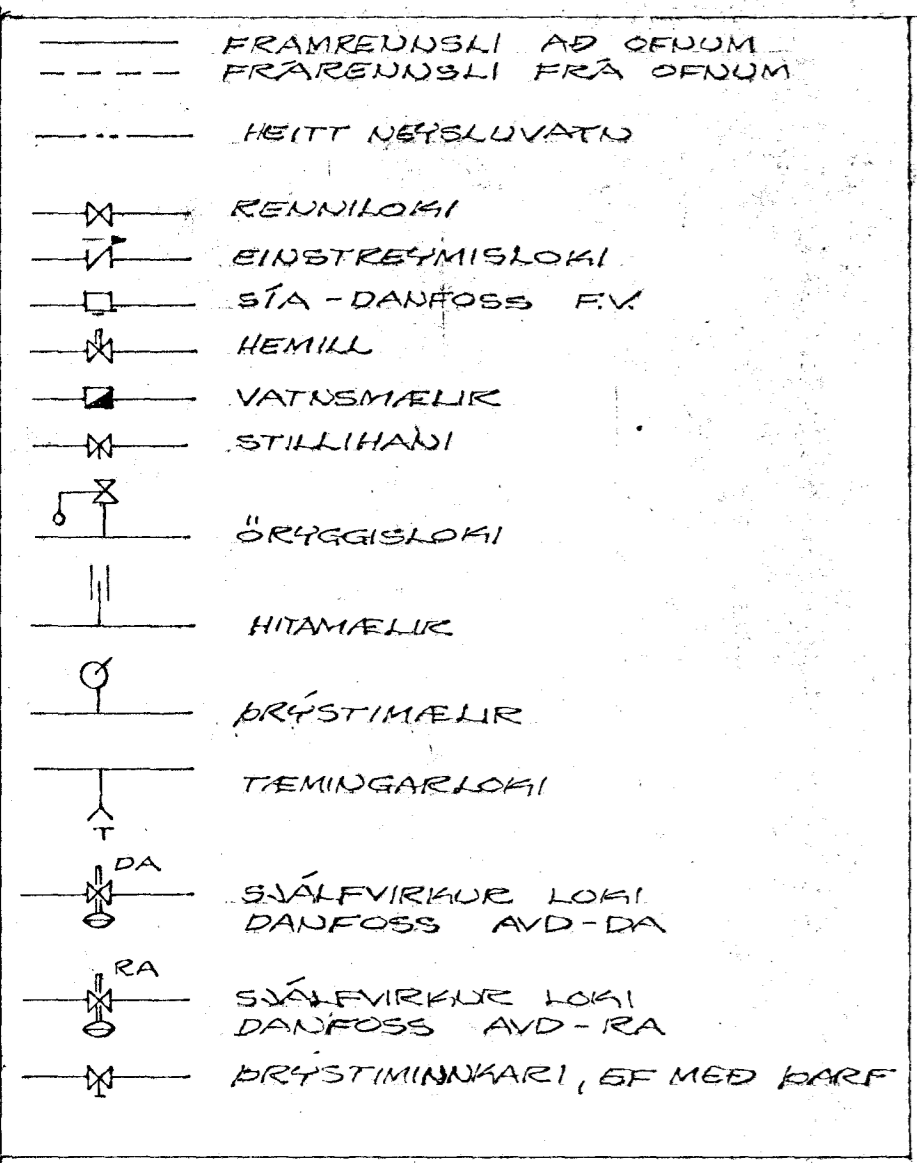 FRAMRENNSLI AÐ OFNUM
FRÁRENNSLI FRÁ OFNUM
HEITT NEYSLUVATN
RENNILOKI
EINSTREYMISLOKI
SÍA - DANFOSS F.V.
HEMILL
VATNSMÆLIR
STILLIHANI
ÖRYGGISLOKI
HITAMÆLIR
ÞRÝSTIMÆLIR
TÆMINGARLOKI
T
DA
SJÁLFVIRKUR LOKI
DANFOSS AVD-DA
RA
SJÁLFVIRKUR LOKI
DANFOSS AVD-RA
ÞRÝSTIMINNKARI, EF MEÐ ÞARF